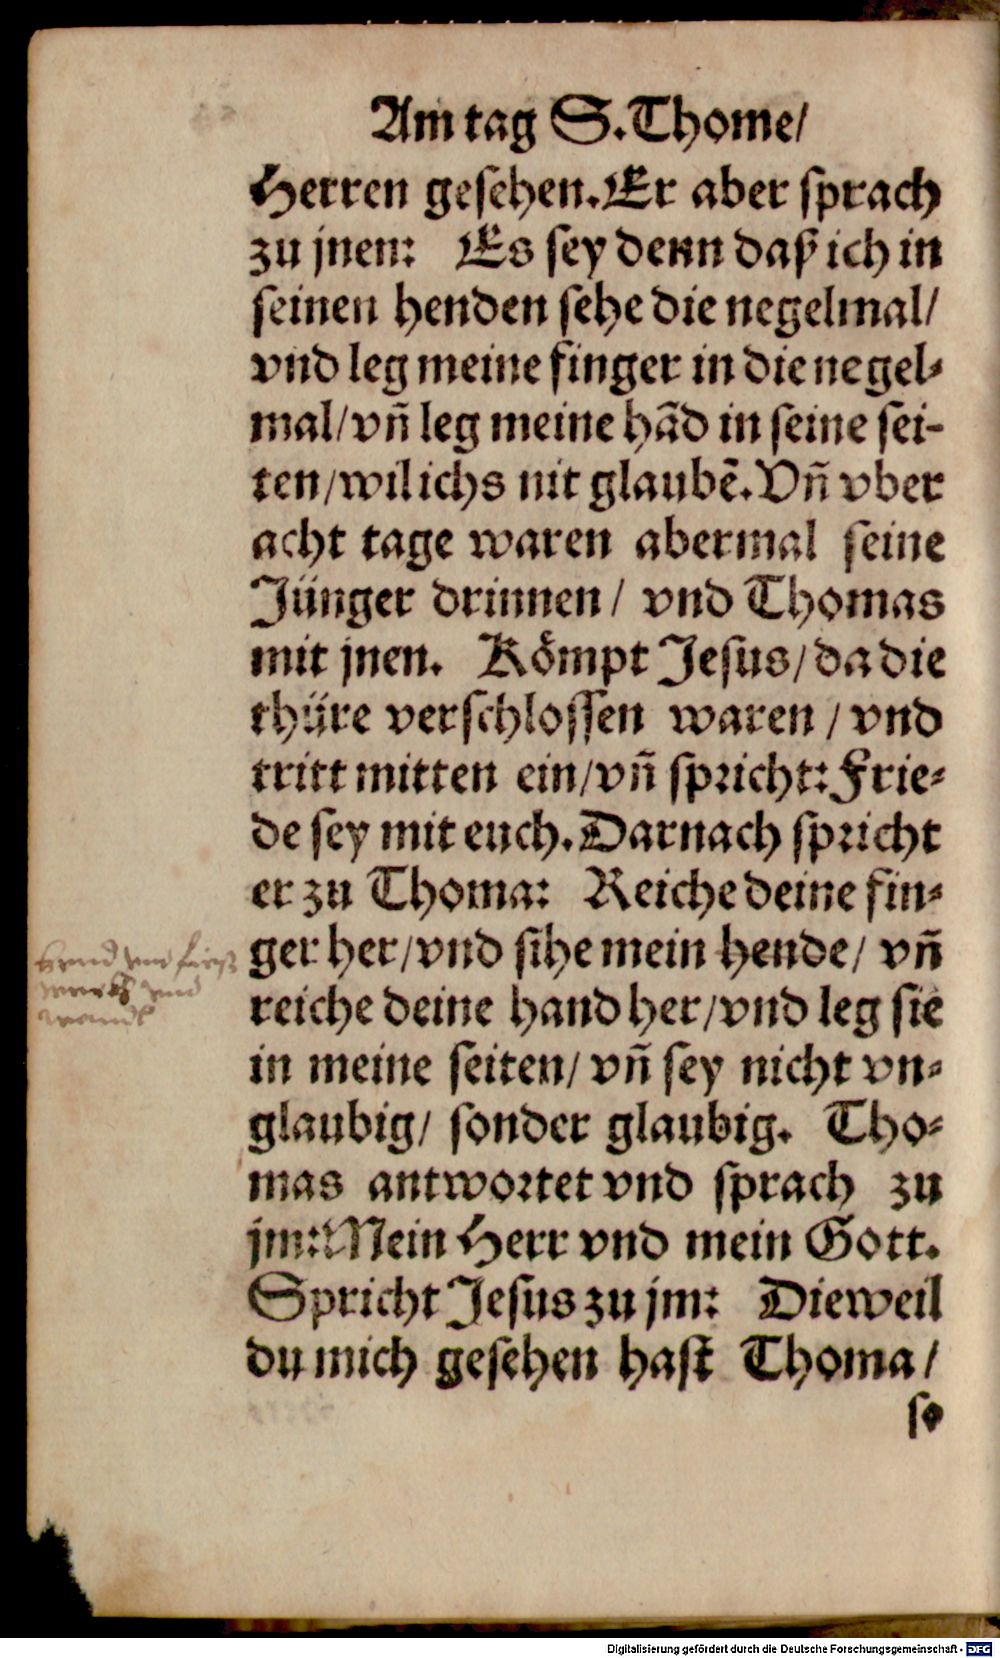 Am tag S. Thome/
Herren gesehen. Er aber sprach
zu jnen: Es sey denn daß ich in
seinen henden sehe die negelmal/
vnd leg meine finger in die negel⸗
mal/vñ leg meine hãd in seine sei-
ten/wil ichs nit glaubẽ. Vñ vber
acht tage waren abermal seine
Jünger drinnen/ vnd Thomas
mit jnen. Kömpt Jesus/da die
thüre verschlossen waren / vnd
tritt mitten ein/vñ spricht: Frie⸗
de sey mit euch. Darnach spricht
er zu Thoma: Reiche deine fin⸗
ger her/vnd sihe mein hende/ vñ
reiche deine hand her/vnd leg sie
in meine seiten/ vñ sey nicht vn⸗
glaubig/ sonder glaubig. Tho⸗
mas antwortet vnd sprach zu
jm: Mein Herr vnd mein Gott.
Spricht Jesus zu jm: Dieweil
du mich gesehen hast Thoma /
so
Digitalisierung gefördert durch die Deutsche Forschungsgemeinschaft - DFG